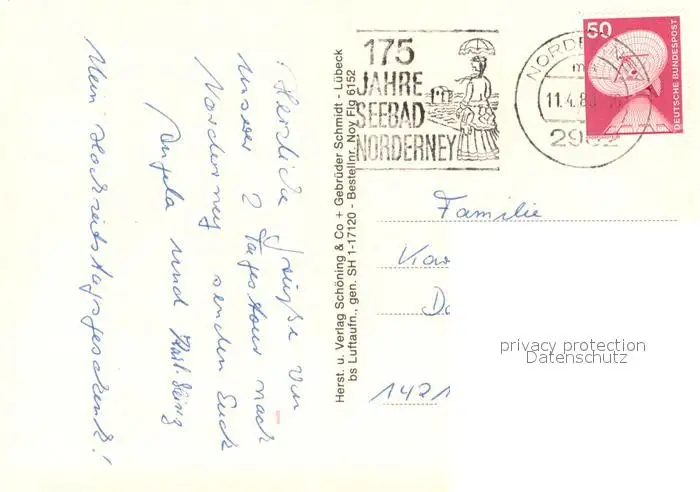 ! Herzliche Grüße von
unserer 2 Tagestour nach
Norderney senden Euch
Angela und Karl-Heinz
Mein Hochzeitstagsgeschenk!
Herst. u. Verlag Schöning & Co + Gebrüder Schmidt - Lübeck
bs Luftaufn., gen. SH 1-17120 - Bestellnr. Nov Flg 6152
175
JAHRE
SEEBAD
NORDERNEY
11.4.8
2982
50
DEUTSCHE BUNDESPOST
Familie
privacy protection
Datenschutz
1421